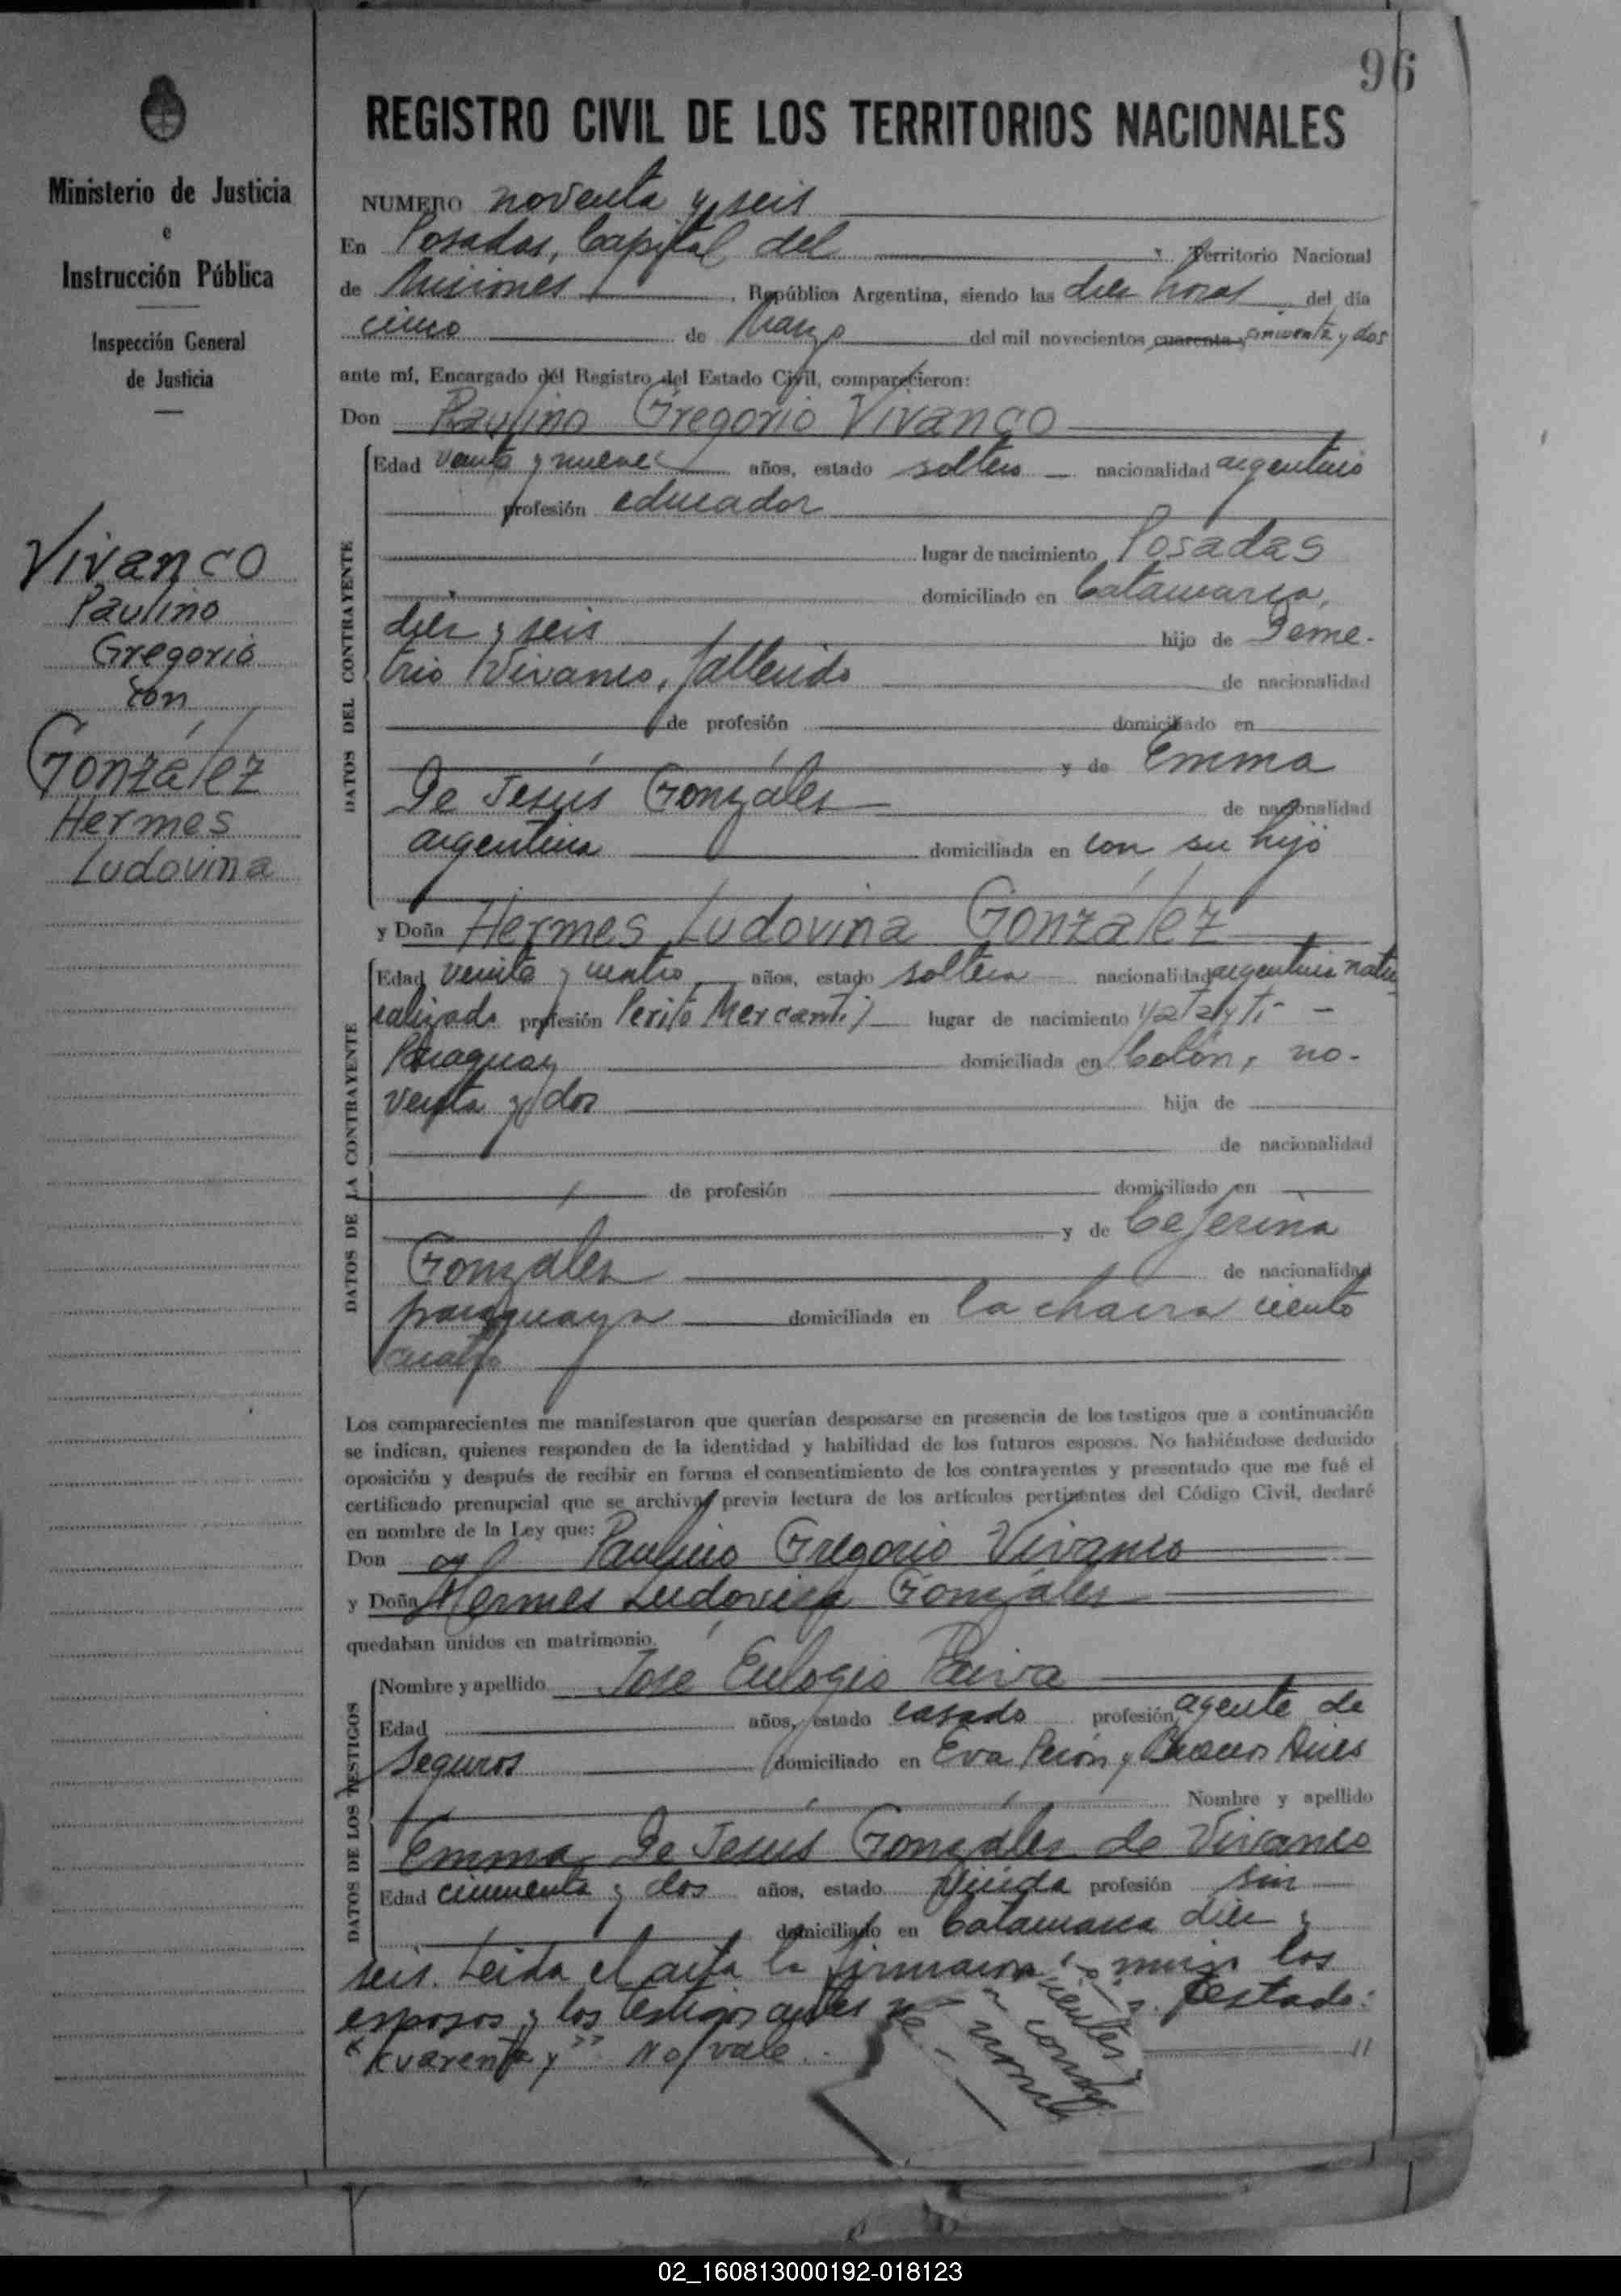 96
REGISTRO CIVIL DE LOS TERRITORIOS NACIONALES
Ministerio de Justicia
e
Instrucción Pública
Inspección General
de Justicia
Vivanco
Paulino
Gregorio
con
González
Hermes
Ludovina
NUMERO noventa y seis
En Posadas, Capital del Territorio Nacional
de Misiones, República Argentina, siendo las diez horas del día
cinco de Marzo del mil novecientos cuarenta y cincuenta y dos
ante mí, Encargado del Registro del Estado Civil, comparecieron:
Don Paulino Gregorio Vivanco
DATOS DEL CONTRAYENTE
Edad veinte y nueve años, estado soltero nacionalidad argentino
profesión educador
lugar de nacimiento Posadas
domiciliado en Catamarca,
diez y seis hijo de Deme-
trio Vivanco, fallecido de nacionalidad
de profesión domiciliado en
y de Emma
De Jesús González de nacionalidad
argentina domiciliada en con su hijo
y Doña Hermes Ludovina González
DATOS DE LA CONTRAYENTE
Edad veinte y cuatro años, estado soltera nacionalidad argentina natu-
ralizada profesión Perito Mercantil lugar de nacimiento Yataity -
Paraguay domiciliada en Colón, no-
venta y dos hija de
de nacionalidad
de profesión domiciliado en
y de Ceferina
González de nacionalidad
paraguaya domiciliada en la chacra ciento
cuatro
Los comparecientes me manifestaron que querían desposarse en presencia de los testigos que a continuación
se indican, quienes responden de la identidad y habilidad de los futuros esposos. No habiéndose deducido
oposición y después de recibir en forma el consentimiento de los contrayentes y presentado que me fué el
certificado prenupcial que se archiva, previa lectura de los artículos pertinentes del Código Civil, declaré
en nombre de la Ley que:
Don Paulino Gregorio Vivanco
y Doña Hermes Ludovina González
quedaban unidos en matrimonio.
DATOS DE LOS TESTIGOS
Nombre y apellido José Eulogio Paiva
Edad años, estado casado profesión agente de
Seguros domiciliado en Eva Perón y Buenos Aires
Nombre y apellido
Emma De Jesús González de Vivanco
Edad cincuenta y dos años, estado viuda profesión sin
domiciliado en Catamarca diez y
seis. Leída el acta la firmaron los
esposos y los testigos antes Testado:
"cuarenta y" No vale.
02_160813000192-018123